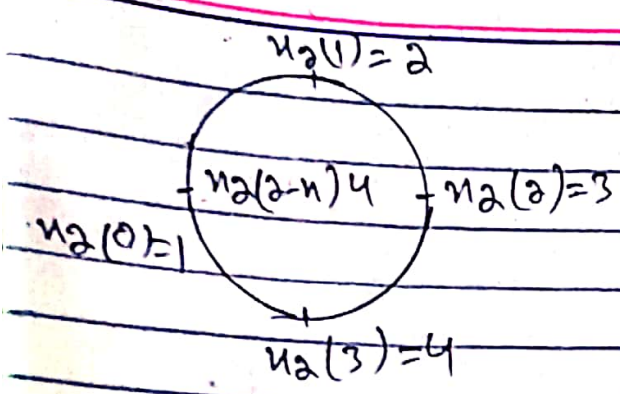 x₂(1) = 2
x₂(2-n)4
x₂(2) = 3
x₂(0) = 1
x₂(3) = 4